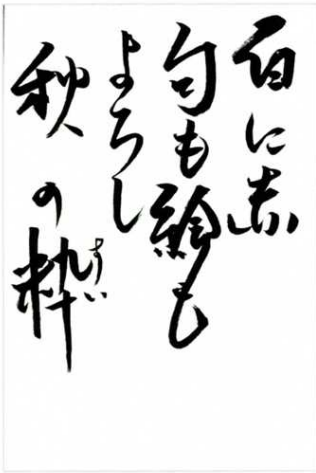 白に赤
句も絵も
よろし
秋の粋
すい